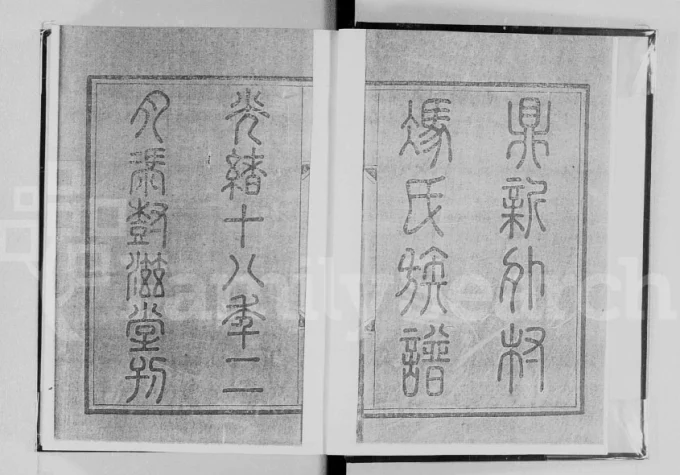 鼎新外村
馮氏族譜
光緒十八年二
月樹滋堂刊
FamilySearch